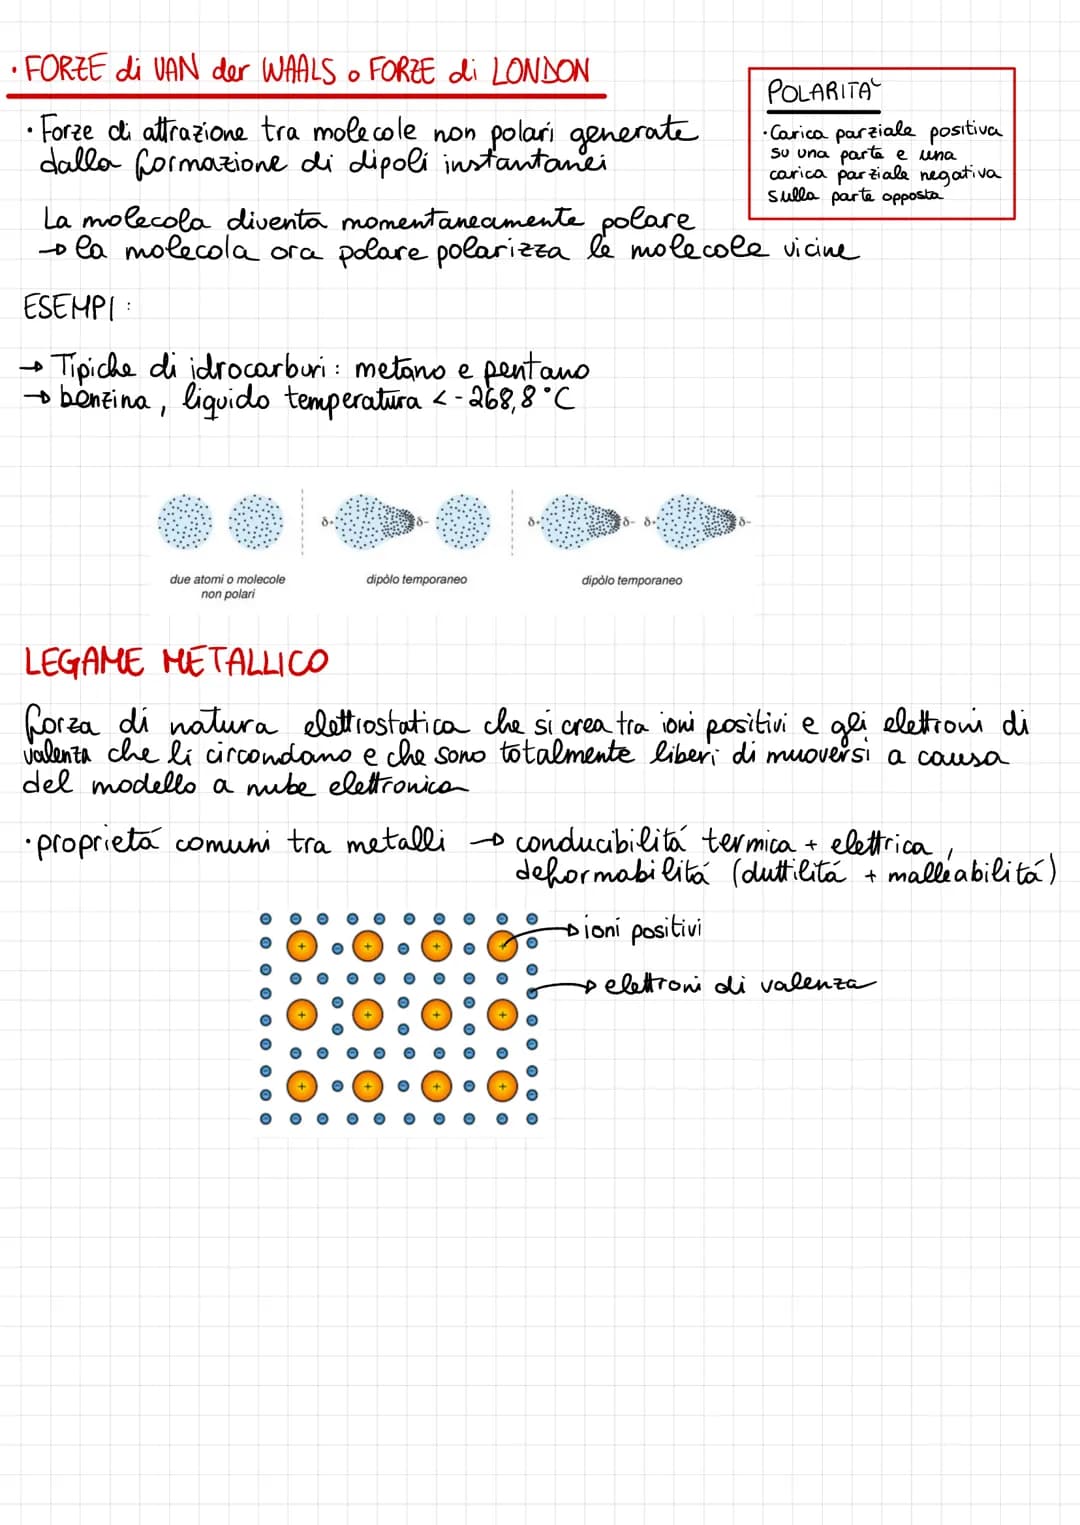 • FORZE di VAN der WAALS o FORZE di LONDON
POLARITA'
• Carica parziale positiva
su una parte e una
carica parziale negativa
sulla parte opposta
• Forze di attrazione tra molecole non polari generate
dalla formazione di dipoli instantanei
La molecola diventa momentaneamente polare
→ la molecola ora polare polarizza le molecole vicine
ESEMPI :
→ Tipiche di idrocarburi : metano e pentano
→ benzina, liquido temperatura < -268,8 °C
δ+ δ- δ+ δ- δ+ δ-
due atomi o molecole
non polari
dipòlo temporaneo
dipòlo temporaneo
LEGAME METALLICO
forza di natura elettrostatica che si crea tra ioni positivi e gli elettroni di
valenza che li circondano e che sono totalmente liberi di muoversi a causa
del modello a nube elettronica
• proprietá comuni tra metalli → conducibilitá termica + elettrica,
deformabilitá (duttilitá + malleabilitá)
→ ioni positivi
→ elettroni di valenza